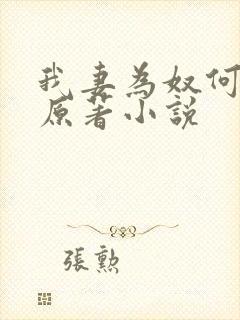 我妻为奴何
原著小説
張勲